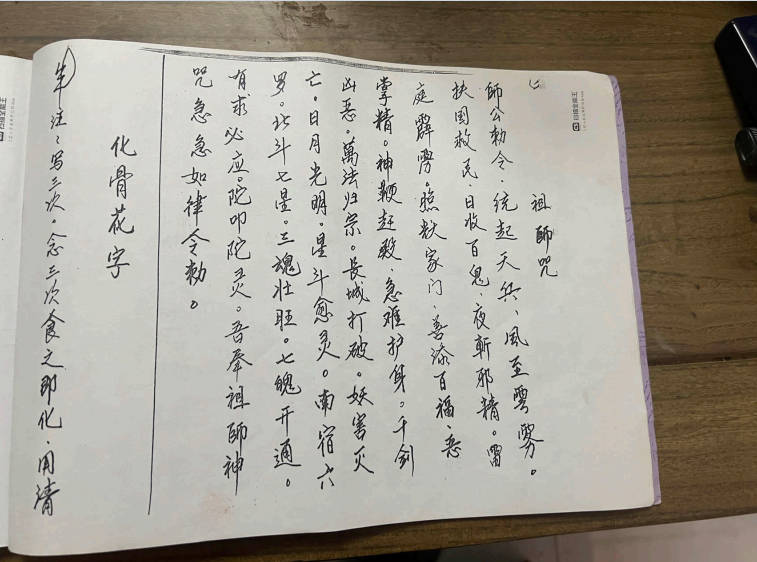 祖師咒
師公勅令．统起天兵．風至雲雾。
扶国救民．日收百鬼．夜斬邪精。雷
庭霹雳。照妖家门．善添百福．恶
掌精。神鞭赶殺．急难护身。千剑
凶恶。萬法归宗。長城打破。妖害灭
亡。日月光明。星斗愈灵。南宿六
罗。北斗七星。三魂壮旺。七魄开通。
有求必应。陀叩陀灵。吾奉祖師神
咒急急如律令勅。
化骨花字
注：写三次。念三次食之即化．用清